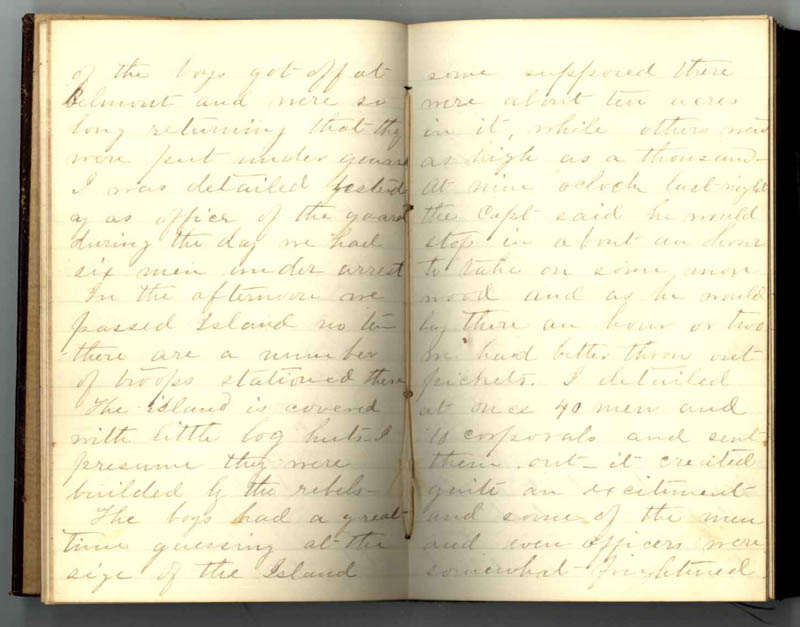 of the boys got off at
Belmont and were so
long returning that they
were put under guard
I was detailed yesterd
ay as officer of the guard
during the day we had
six men under arrest
In the afternoon we
passed Island no ten
there are a number
of troops stationed there
The island is covered
with little log huts I
presume they were
builded by the rebels -
The boys had a great
time guessing at the
size of the Island
some supposed there
were about ten acres
in it, while others went
as high as a thousand -
At nine oclock last night
the Capt said he would
stop in about an hour
to take on some more
wood and as he would
lay there an hour or two
we had better throw out
pickets. I detailed
at once 40 men and
10 corporals and sent
them out - it created
quite an excitement
and some of the men
and even officers were
somewhat frightened